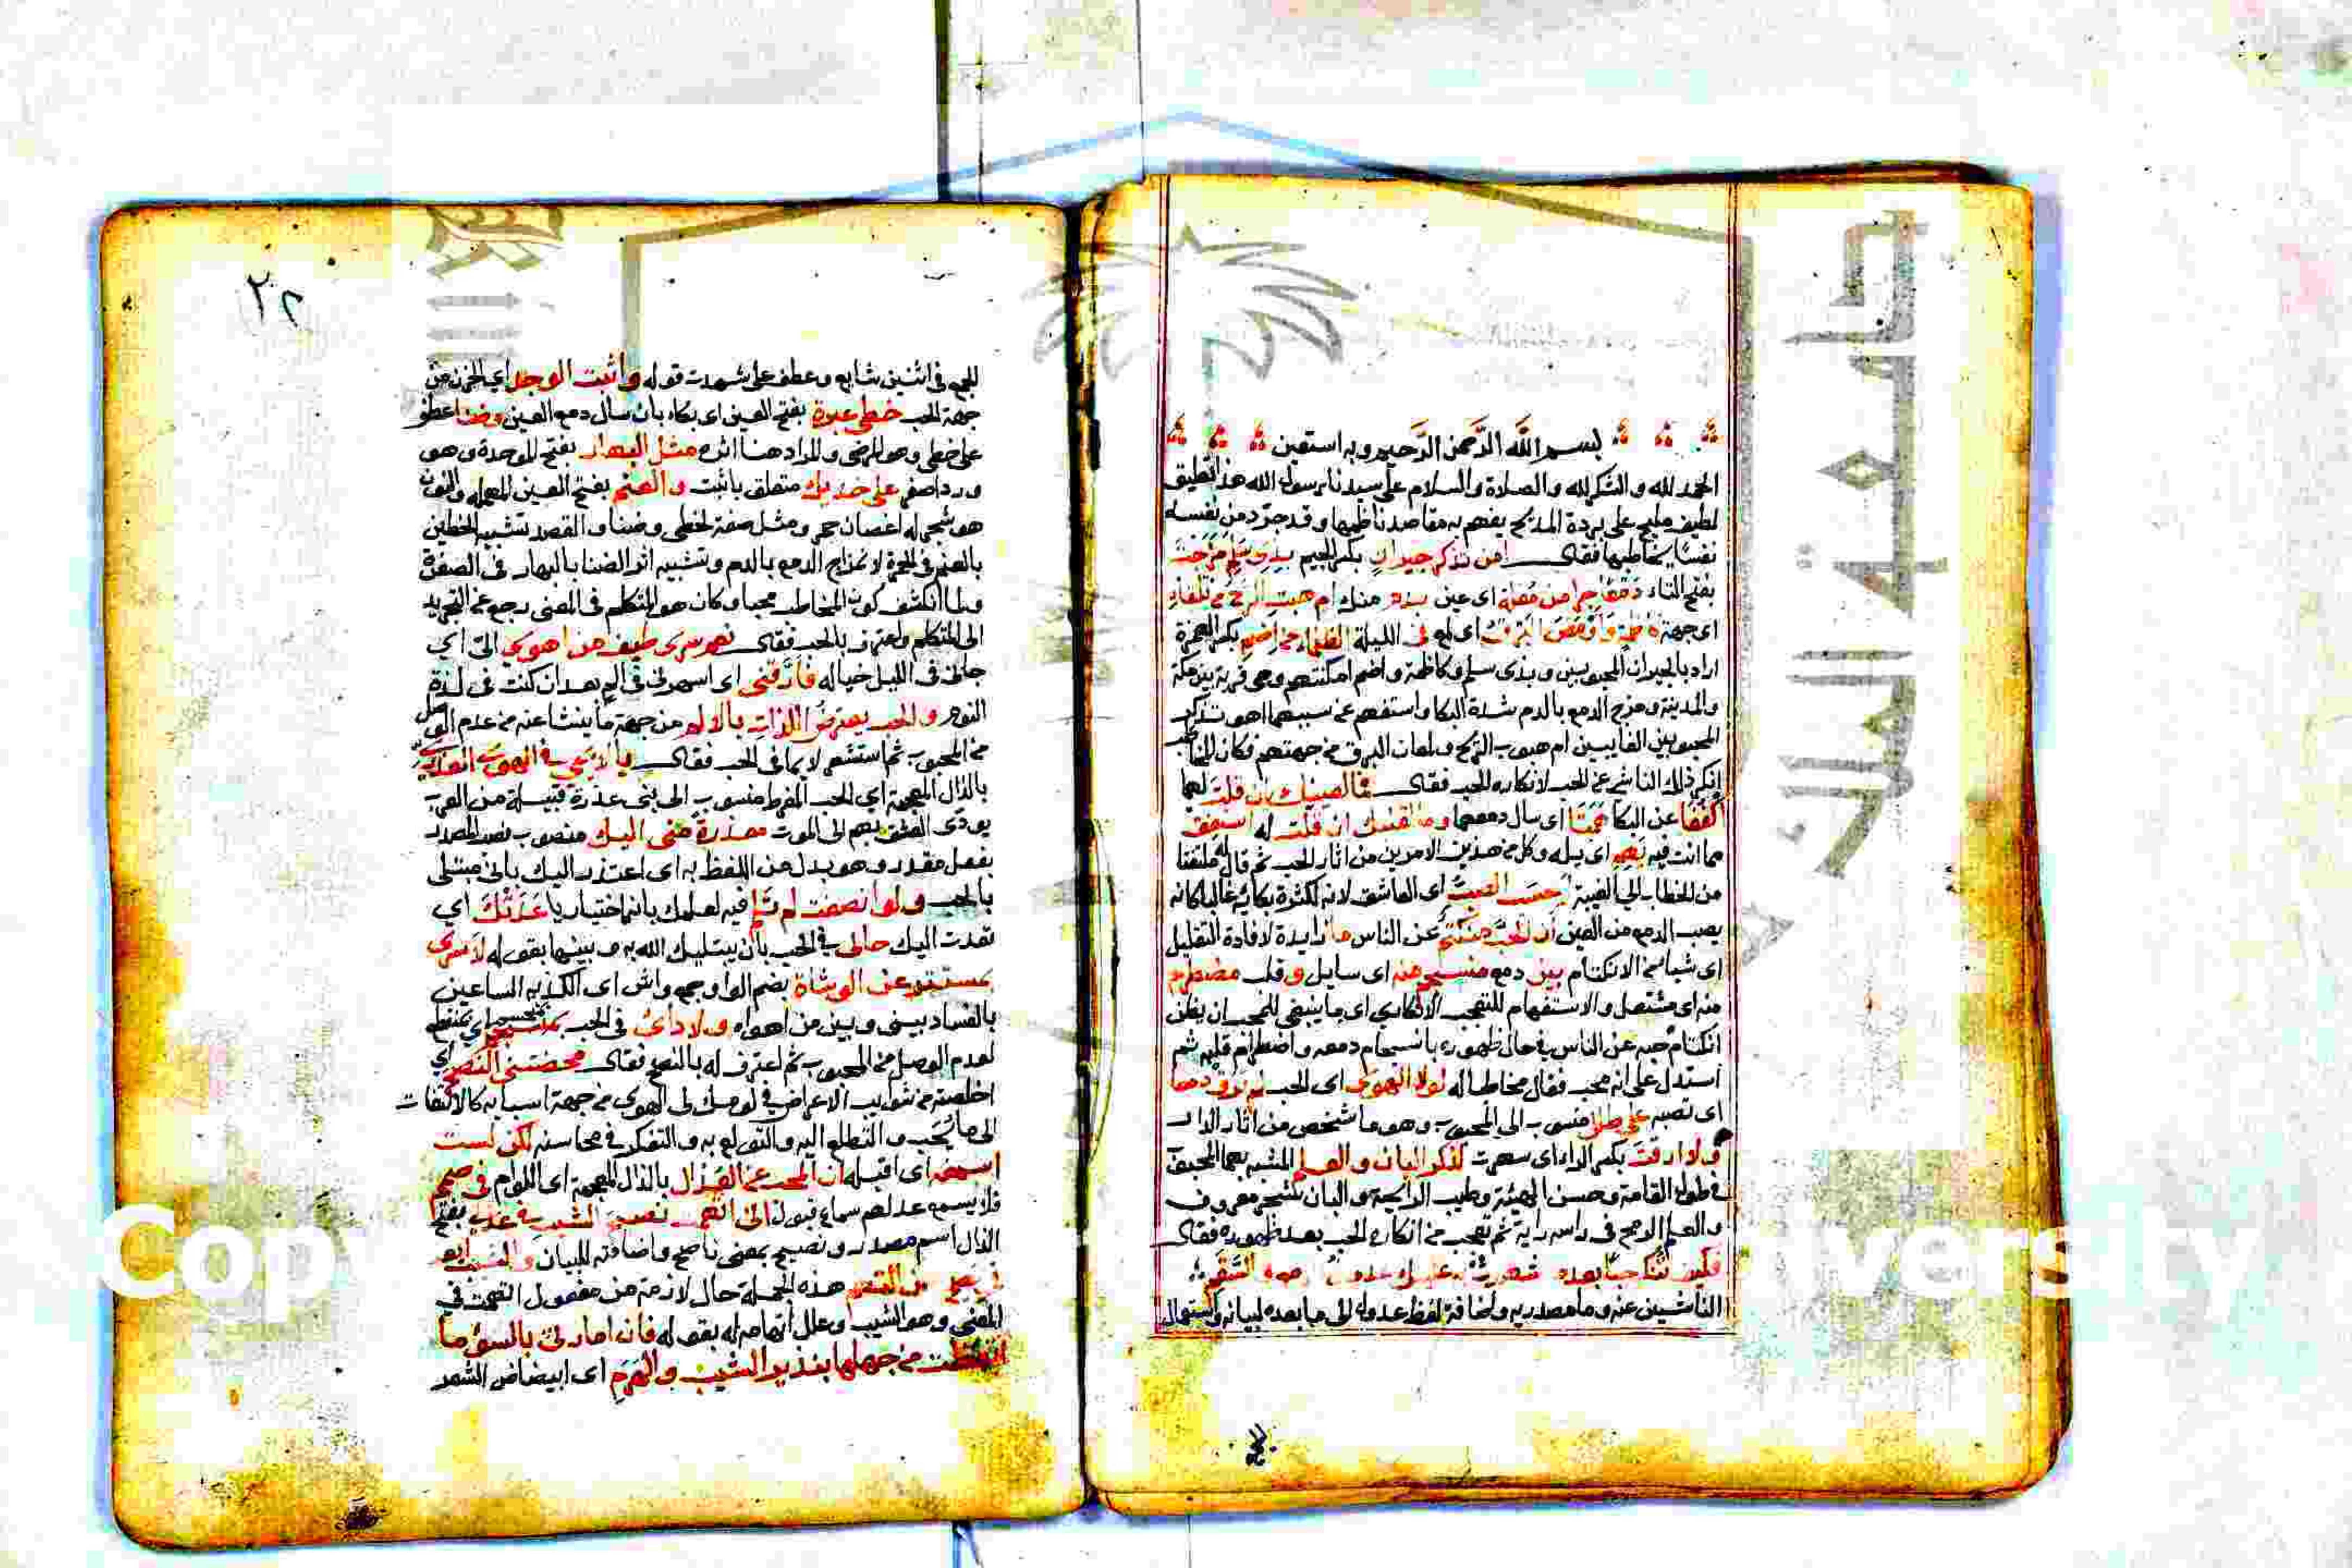 بسم الله الرحمن الرحيم وبه استعين
الحمد لله والشكر لله والصلاة والسلام على سيدنا رسول الله هذا تعليق
لطيف مليح على بردة المديح يفهم به مقاصد ناظمها وقد جرّد من نفسه
نفسًا يخاطبها فقال امن تذكر جيران بكسر الجيم بذي سلم مزجت
بفتح التاء دمعًا جرا من مقلة اى عين بدم منك ام هبت الريح من تلقاء
اى جهة كاظمة واومض البرق اى لمع فى الليلة الظلماء من اضم بكسر الهمزة
اراد بالجيران المحبوبين وبذى سلم وكاظمة واضم امكنتهم وهى قرية بين مكة
والمدينة ومزج الدمع بالدم شدة البكا واستفهم عن سببهما اهو تذكر
المحبوبين الغايبين ام هبوب الريح ولمعان البرق من جهتهم فكان المخاطب
انكر ذلك الناشى عن الحب لانكاره للحب فقال فما لعينيك ان قلت لهما
اكففا عن البكا همتا اى سال دمعهما وما لقلبك ان قلت له استفق
مما انت فيه يهم اى يبله وكل من هذين الامرين من اثار الحب ثم قال له ملتفتا
من الخطاب الى الغيبة ايحسب الصب اى العاشق لانه لكثرة بكائه غالبا كانه
يصب الدمع من العين ان الحب منكتم عن الناس ما زايدة لافادة التقليل
اى شيا من الانكتام بين دمع منسجم منه اى سايل وقلب مضطرم
منه اى مشتعل والاستفهام للتعجب الانكاري اى ما ينبغى للمحب ان يظن
انكتام حبه عن الناس فى حال ظهوره بانسجام دمعه واضطرام قلبه ثم
استدل على انه محب فقال مخاطبا له لولا الهوى اى الحب لم ترق دمعا
اى تصبه على طلل منسوب الى المحبوب وهو ما شخص من اثار الدار
ولا ارقت بكسر الراء اى سهرت لذكر البان والعلم المشبه بهما المحبوب
فى طول القامة وحسن الهيئة وطيب الرايحة والبان شجر معروف
والعلم الرمح فى راسه راية ثم تعجب من انكاره الحب بعد ظهوره فقال
فكيف تنكر حبا بعد ما شهدت به عليك عدول الدمع والسقم
الناشيين عنه وما مصدريه واضافة لفظ عدول الى ما بعده لبيانه واستعمال
الجمع
٢٢
الجمع فى اثنين شايع وعطف على شهدت قوله واثبت الوجد اي الحزن من
جهة الحب خطى عبرة بفتح العين اى بكاء بان سال دمع العين وضنا عطف
على خطى وهو المرض والمراد هنا اثره مثل البهار بفتح الموحدة وهو
ورد اصفر على خديك متعلق باثبت والعنم بفتح العين المهمله والنون
هو شجر له اغصان حمر ومثل صفة لخطى وضنا والقصد تشبيه الخطين
بالعنم فى الحمرة لامتزاج الدمع بالدم وتشبيه اثر الضنا بالبهار فى الصفرة
ولما انكشف كون المخاطب محبا وكان هو المتكلم فى المعنى رجع عن التجريد
الى المتكلم واعترف بالحب فقال نعم سرى طيف من اهوى الىّ اي
جانى فى الليل خياله فأرّقنى اى اسهرنى فى الم بعد ان كنت فى لذة
النوم والحب يعترض اللذات بالالم من جهة ما ينشا عنه من عدم الوصل
من المحبوب ثم استشعر لايما فى الحب فقال يا لائمي فى الهوى العذري
بالذال المعجمة اى الحب المفرط منسوب الى بنى عذرة قبيلة من العرب
يودى العشق بهم الى الموت معذرة منى اليك منصوب نصب المصدر
بفعل مقدر وهو بدل من اللفظ به اى اعتذر اليك بانى مبتلى
بالحب ولو انصفت لم تلم فيه لعلمك بانه اختياريا عدتك اي
تعدت اليك حالى فى الحب بان يبتليك الله به وبينها بقوله لا سرى
بمستتر عن الوشاة بضم الواو جمع واش اى الكذبه الساعين
بالفساد بينى وبين من اهواه ولا دائى فى الحب بمنحسم اي بمنقطع
لعدم الوصل من المحبوب ثم اعترف له بالنصح فقال محضتنى النصح اي
اخلصته من شوايب الاعراض فى لومك لى الهوى من جهة اسبابه كالالتفات
الى ما يُحَب والتطلع اليه والتولع به والتفكر فى محاسنه لكن لست
اسمعه اى اقبله ان المحب عن العذال بالذال المعجمة اى اللوام فى صمم
فلا يسمع عدلهم سماع قبول انى اتهمت نصيح الشيب فى عذلى بفتح
الذال اسم مصدر ونصيح بمعنى ناصح واضافته للبيان والشيب ابعد
فى نصح عن التهم هذه الجملة حال لازمة من مفعول اتهمت فى
المعنى وهو الشيب وعلل اتهامه له بقوله فان امارتى بالسوء ما
اتعظت من جهلها بنذير الشيب والهرم اى ابيضاض الشعر